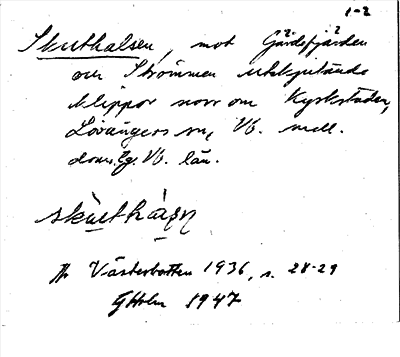 1-2
Skuthalsen, mot Gärdefjärden
och Strömmen utskjutande
klippor norr om Kyrkstaden,
Lövångers sn, Vb. mell.
doms. Vb. län.
Västerbotten 1936, s. 28-29
GHolm 1947